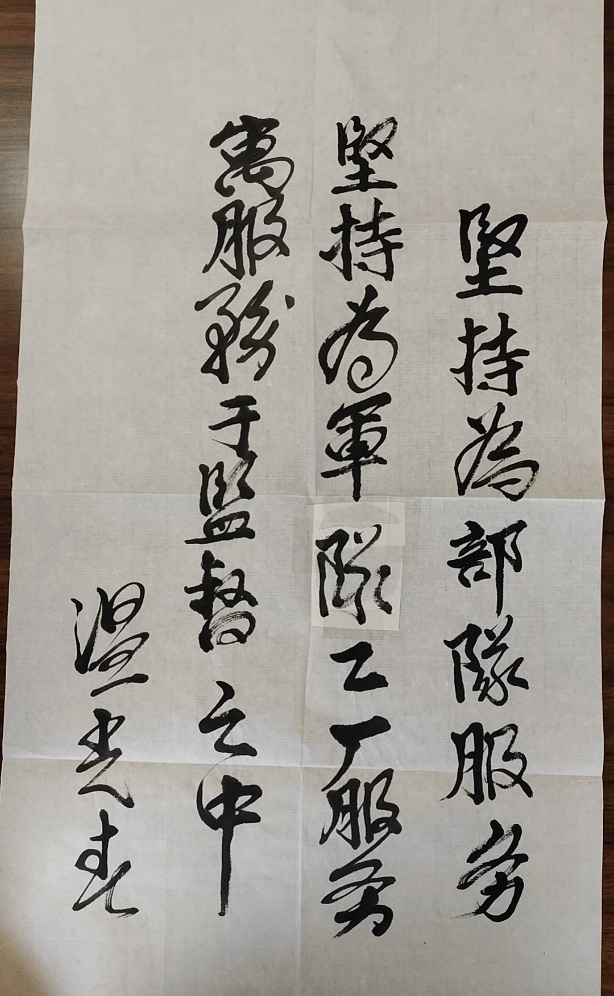 堅持為部隊服务
堅持為軍隊工厂服务
寓服務于監督之中
温光春